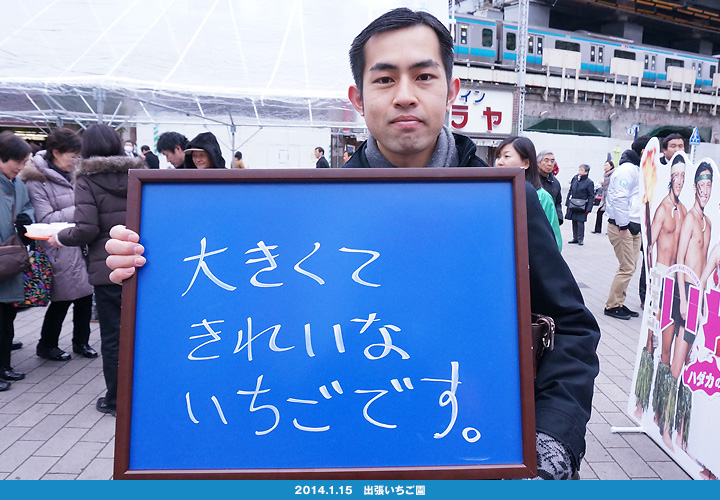 イン
ラヤ
大きくて
きれいな
いちごです。
ハダカの
2014.1.15 出張いちご園